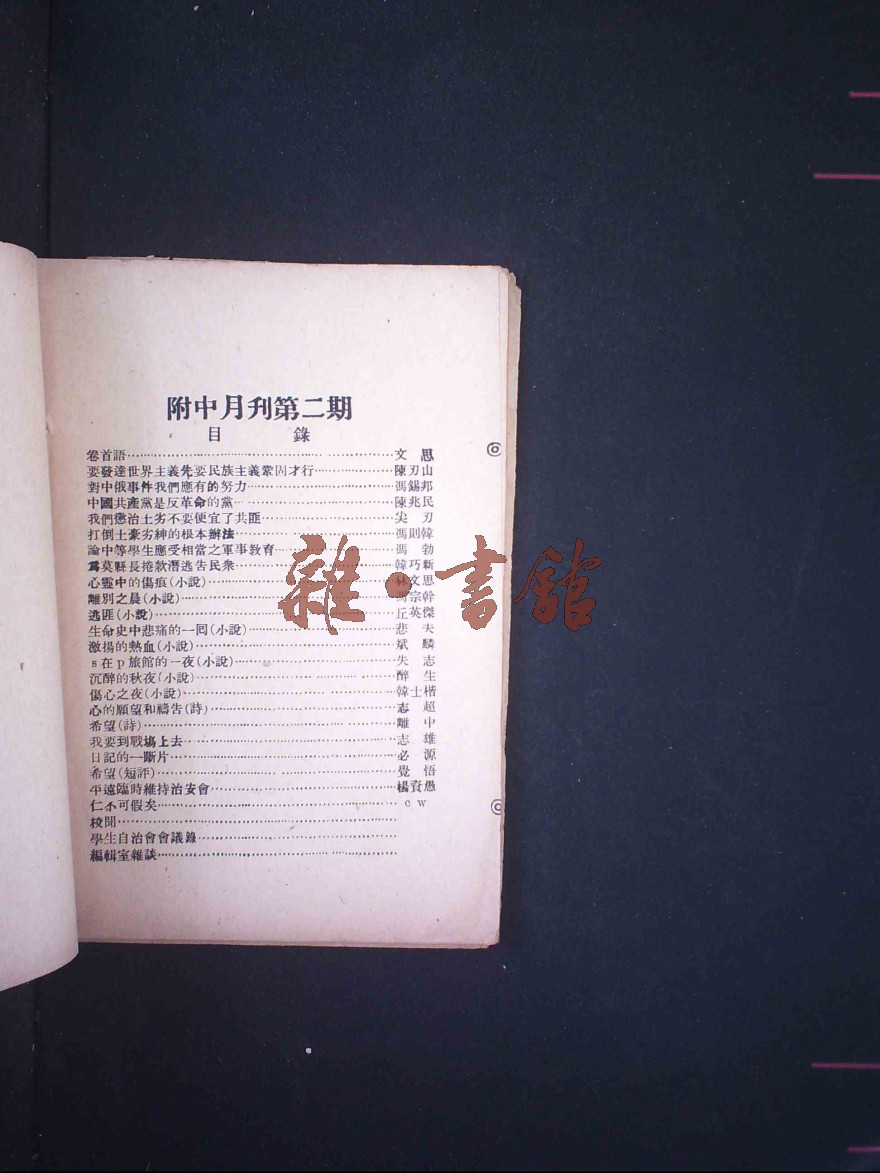 附中月刋第二期
目　錄
卷首語……文　思
要發達世界主義先要民族主義鞏固才行……陳刃山
對中俄事件我們應有的努力……馮錫邦
中國共產黨是反革命的黨……陳兆民
我們懲治土劣不要便宜了共匪……尖　刃
打倒土豪劣紳的根本辦法……馮則韓
論中等學生應受相當之軍事教育……馮　勃
爲莫縣長捲款潛逃告民衆……韓巧新
心靈中的傷痕(小說)……林文思
離別之晨(小說)……馮宗幹
逃匪(小說)……丘英傑
生命史中悲痛的一囘(小說)……悲　夫
激揚的熱血(小說)……斌　麟
s在p旅館的一夜(小說)……失　志
沉醉的秋夜(小說)……醉　生
傷心之夜(小說)……韓士楷
心的願望和禱告(詩)……志　超
希望(詩)……離　中
我要到戰塲上去……志　雄
日記的一斷片……必　源
希望(短評)……覺　悟
平遠臨時維持治安會……楊資愚
仁不可假矣……c w
校聞……
學生自治會會議錄……
編輯室雜談……
雜·書館